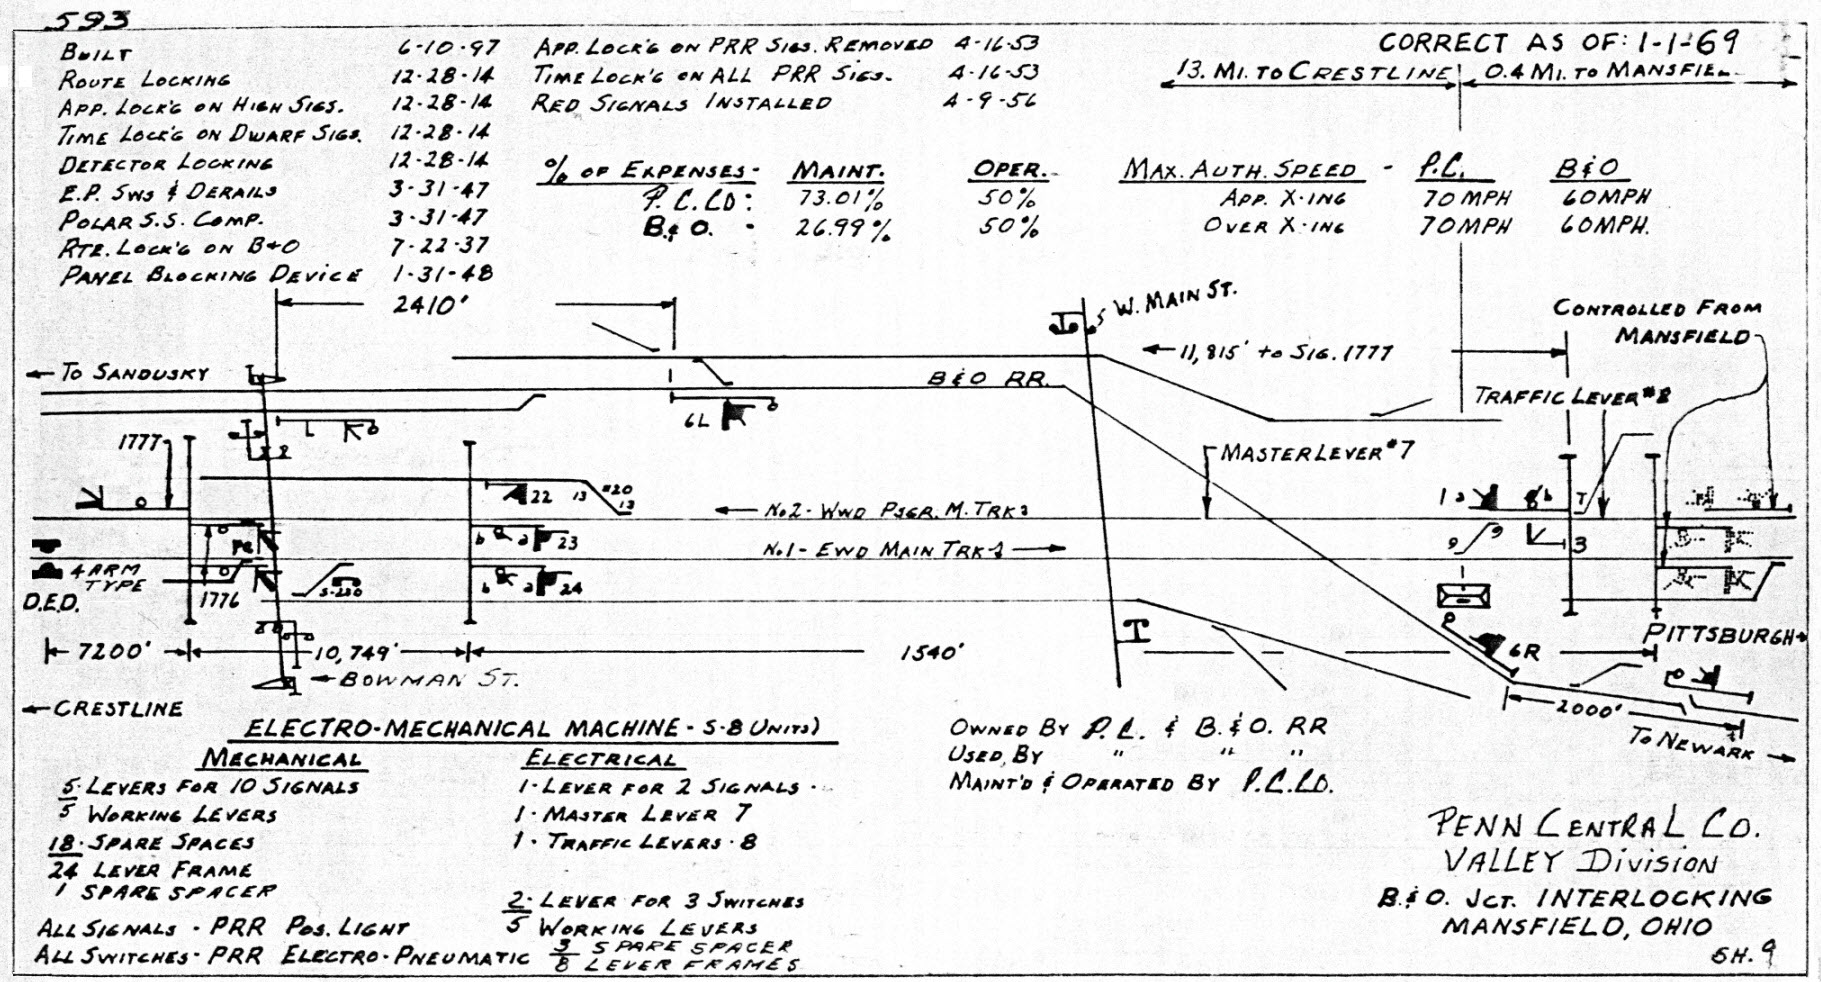 593
BUILT 6-10-97
ROUTE LOCKING 12-28-14
APP. LOCK'G ON HIGH SIGS. 12-28-14
TIME LOCK'G ON DWARF SIGS. 12-28-14
DETECTOR LOCKING 12-28-14
E.P. SWS & DERAILS 3-31-47
POLAR S.S. COMP. 3-31-47
RTE. LOCK'G ON B+O 7-22-37
PANEL BLOCKING DEVICE 1-31-48
APP. LOCK'G ON PRR SIGS. REMOVED 4-16-53
TIME LOCK'G ON ALL PRR SIGS. 4-16-53
RED SIGNALS INSTALLED 4-9-56
CORRECT AS OF: 1-1-69
13. MI. TO CRESTLINE 0.4 MI. TO MANSFIEL
% OF EXPENSES - MAINT. OPER.
P.C.CO: 73.01% 50%
B.&O. - 26.99% 50%
MAX. AUTH. SPEED - P.C. B&O
APP. X-ING 70 MPH 60MPH
OVER X-ING 70MPH 60MPH.
2410'
W. MAIN ST.
CONTROLLED FROM
MANSFIELD
11,815' to SIG. 1777
TO SANDUSKY
B&O RR.
TRAFFIC LEVER #8
6L
1777
MASTER LEVER #7
22 13 #20
13
No.2 - WWD PSGR. M. TRK
b a 23
No.1 - EWD MAIN TRK
9 9 3
4 ARM
TYPE
1776
S-230
b a 24
D.E.D.
7200' 10,749' 1540'
6R
PITTSBURGH
BOWMAN ST.
2000'
CRESTLINE
TO NEWARK
ELECTRO-MECHANICAL MACHINE - S-8 UNITS)
MECHANICAL
5 - LEVERS FOR 10 SIGNALS
5 WORKING LEVERS
18 - SPARE SPACES
24 LEVER FRAME
1 SPARE SPACER
ELECTRICAL
1 - LEVER FOR 2 SIGNALS -
1 - MASTER LEVER 7
1 - TRAFFIC LEVERS - 8
2 - LEVER FOR 3 SWITCHES
5 WORKING LEVERS
3 SPARE SPACER
8 LEVER FRAMES
ALL SIGNALS - PRR POS. LIGHT
ALL SWITCHES - PRR ELECTRO-PNEUMATIC
OWNED BY P.C. & B.&O. RR
USED BY " " "
MAINT'D & OPERATED BY P.C.CO.
PENN CENTRAL CO.
VALLEY DIVISION
B.&O. JCT. INTERLOCKING
MANSFIELD, OHIO
SH. 9